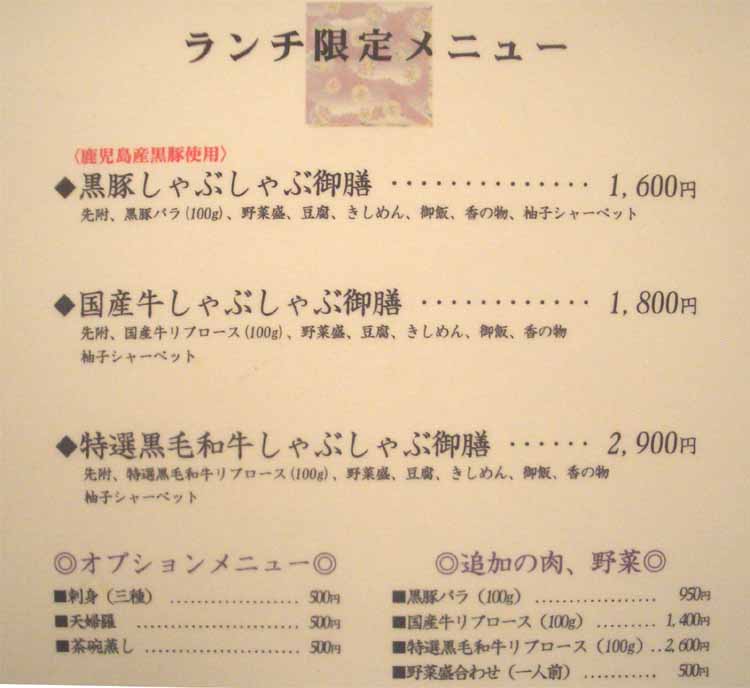 ランチ限定メニュー
〈鹿児島産黒豚使用〉
◆黒豚しゃぶしゃぶ御膳 ・・・・・・・・・・・・・・ 1,600円
先附、黒豚バラ(100g)、野菜盛、豆腐、きしめん、御飯、香の物、柚子シャーベット
◆国産牛しゃぶしゃぶ御膳 ・・・・・・・・・・・・ 1,800円
先附、国産牛リブロース(100g)、野菜盛、豆腐、きしめん、御飯、香の物
柚子シャーベット
◆特選黒毛和牛しゃぶしゃぶ御膳 ・・・・・・ 2,900円
先附、特選黒毛和牛リブロース(100g)、野菜盛、豆腐、きしめん、御飯、香の物
柚子シャーベット
◎オプションメニュー◎
■刺身（三種） ................... 500円
■天婦羅 ....................... 500円
■茶碗蒸し ..................... 500円
◎追加の肉、野菜◎
■黒豚バラ（100g） .................. 950円
■国産牛リブロース（100g） .......... 1,400円
■特選黒毛和牛リブロース（100g）..2,600円
■野菜盛合わせ（一人前） ........... 500円